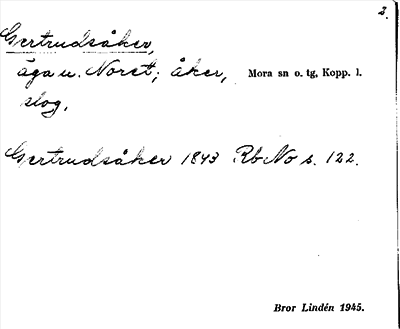 2.
Gertrudsåker,
äga u. Noret; åker, Mora sn o. tg, Kopp. l.
slog.
Gertrudsåker 1843 Rb No s. 122.
Bror Lindén 1945.